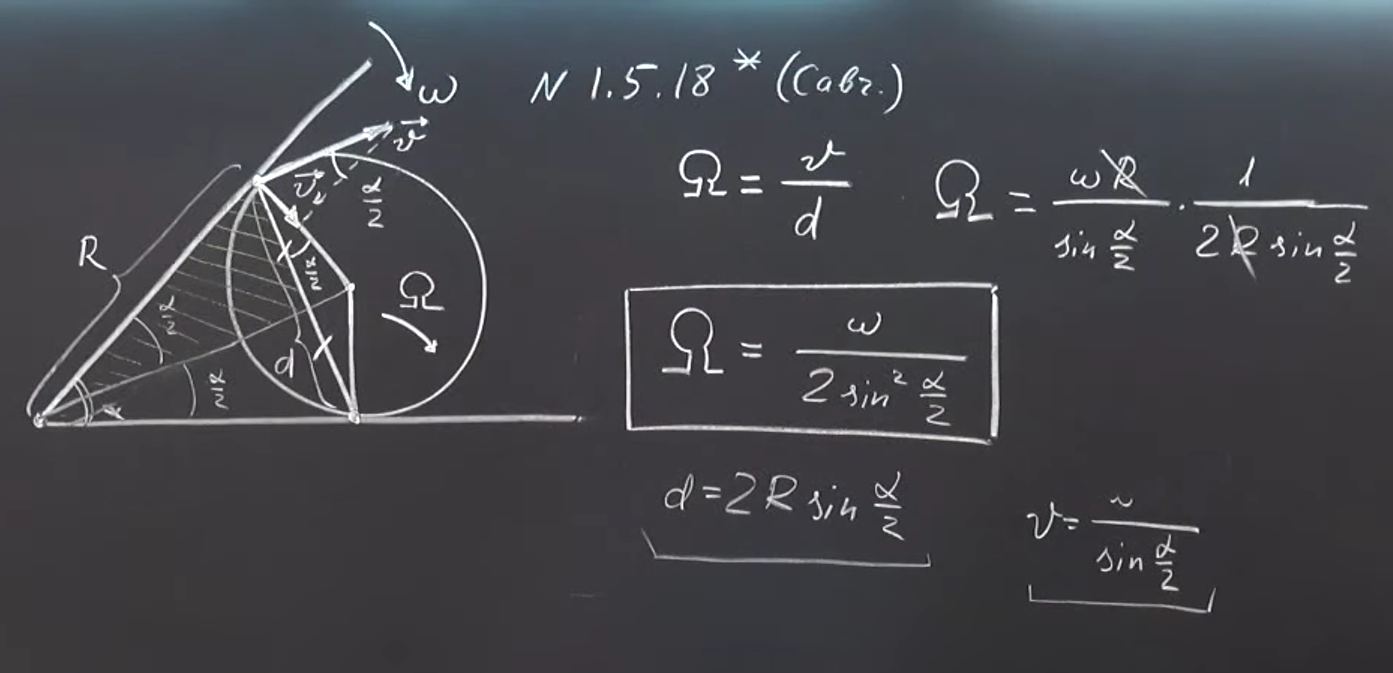 N 1.5.18* (Савч.)
ω
v⃗
v⃗₁
α/2
R
α/2
α/2
α/2
α
d
Ω
Ω = v/d
Ω = ωR/sin α/2 · 1/2R sin α/2
Ω = ω/2 sin² α/2
d = 2R sin α/2
v = /sin α/2